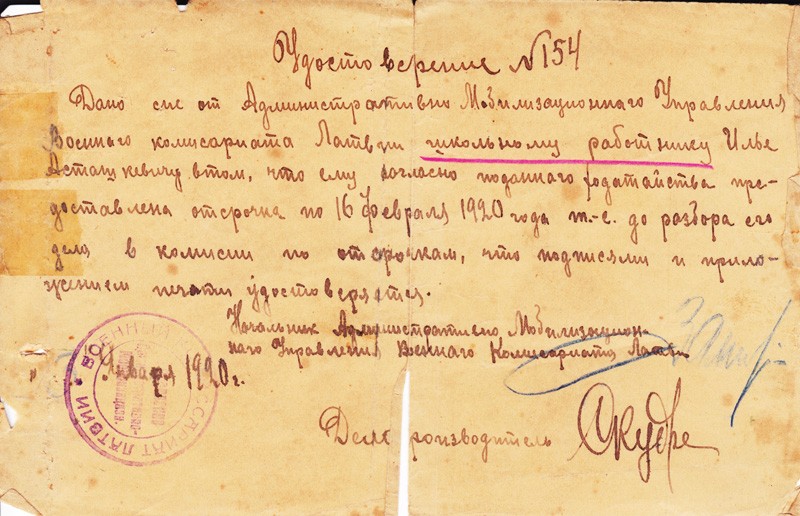 Удостоверение №154
Дано сие от Административно Мобилизационнаго Управления
Военнаго комисариата Латвии школьному работнику Илье
Асташкевичу в том, что ему согласно поданнаго ходатайства пре-
доставлена отсрочка по 16 февраля 1920 года т.-е. до разбора его
дела в комисии по отсрочкам, что подписями и прило-
жением печати удостоверяется.
Начальник Административно Мобилизацион-
наго Управления Военнаго Комиссариата Латвии
" Января 1920 г.
ВОЕННЫЙ КОМИССАРИАТ ЛАТВИИ
Делопроизводитель Скудре